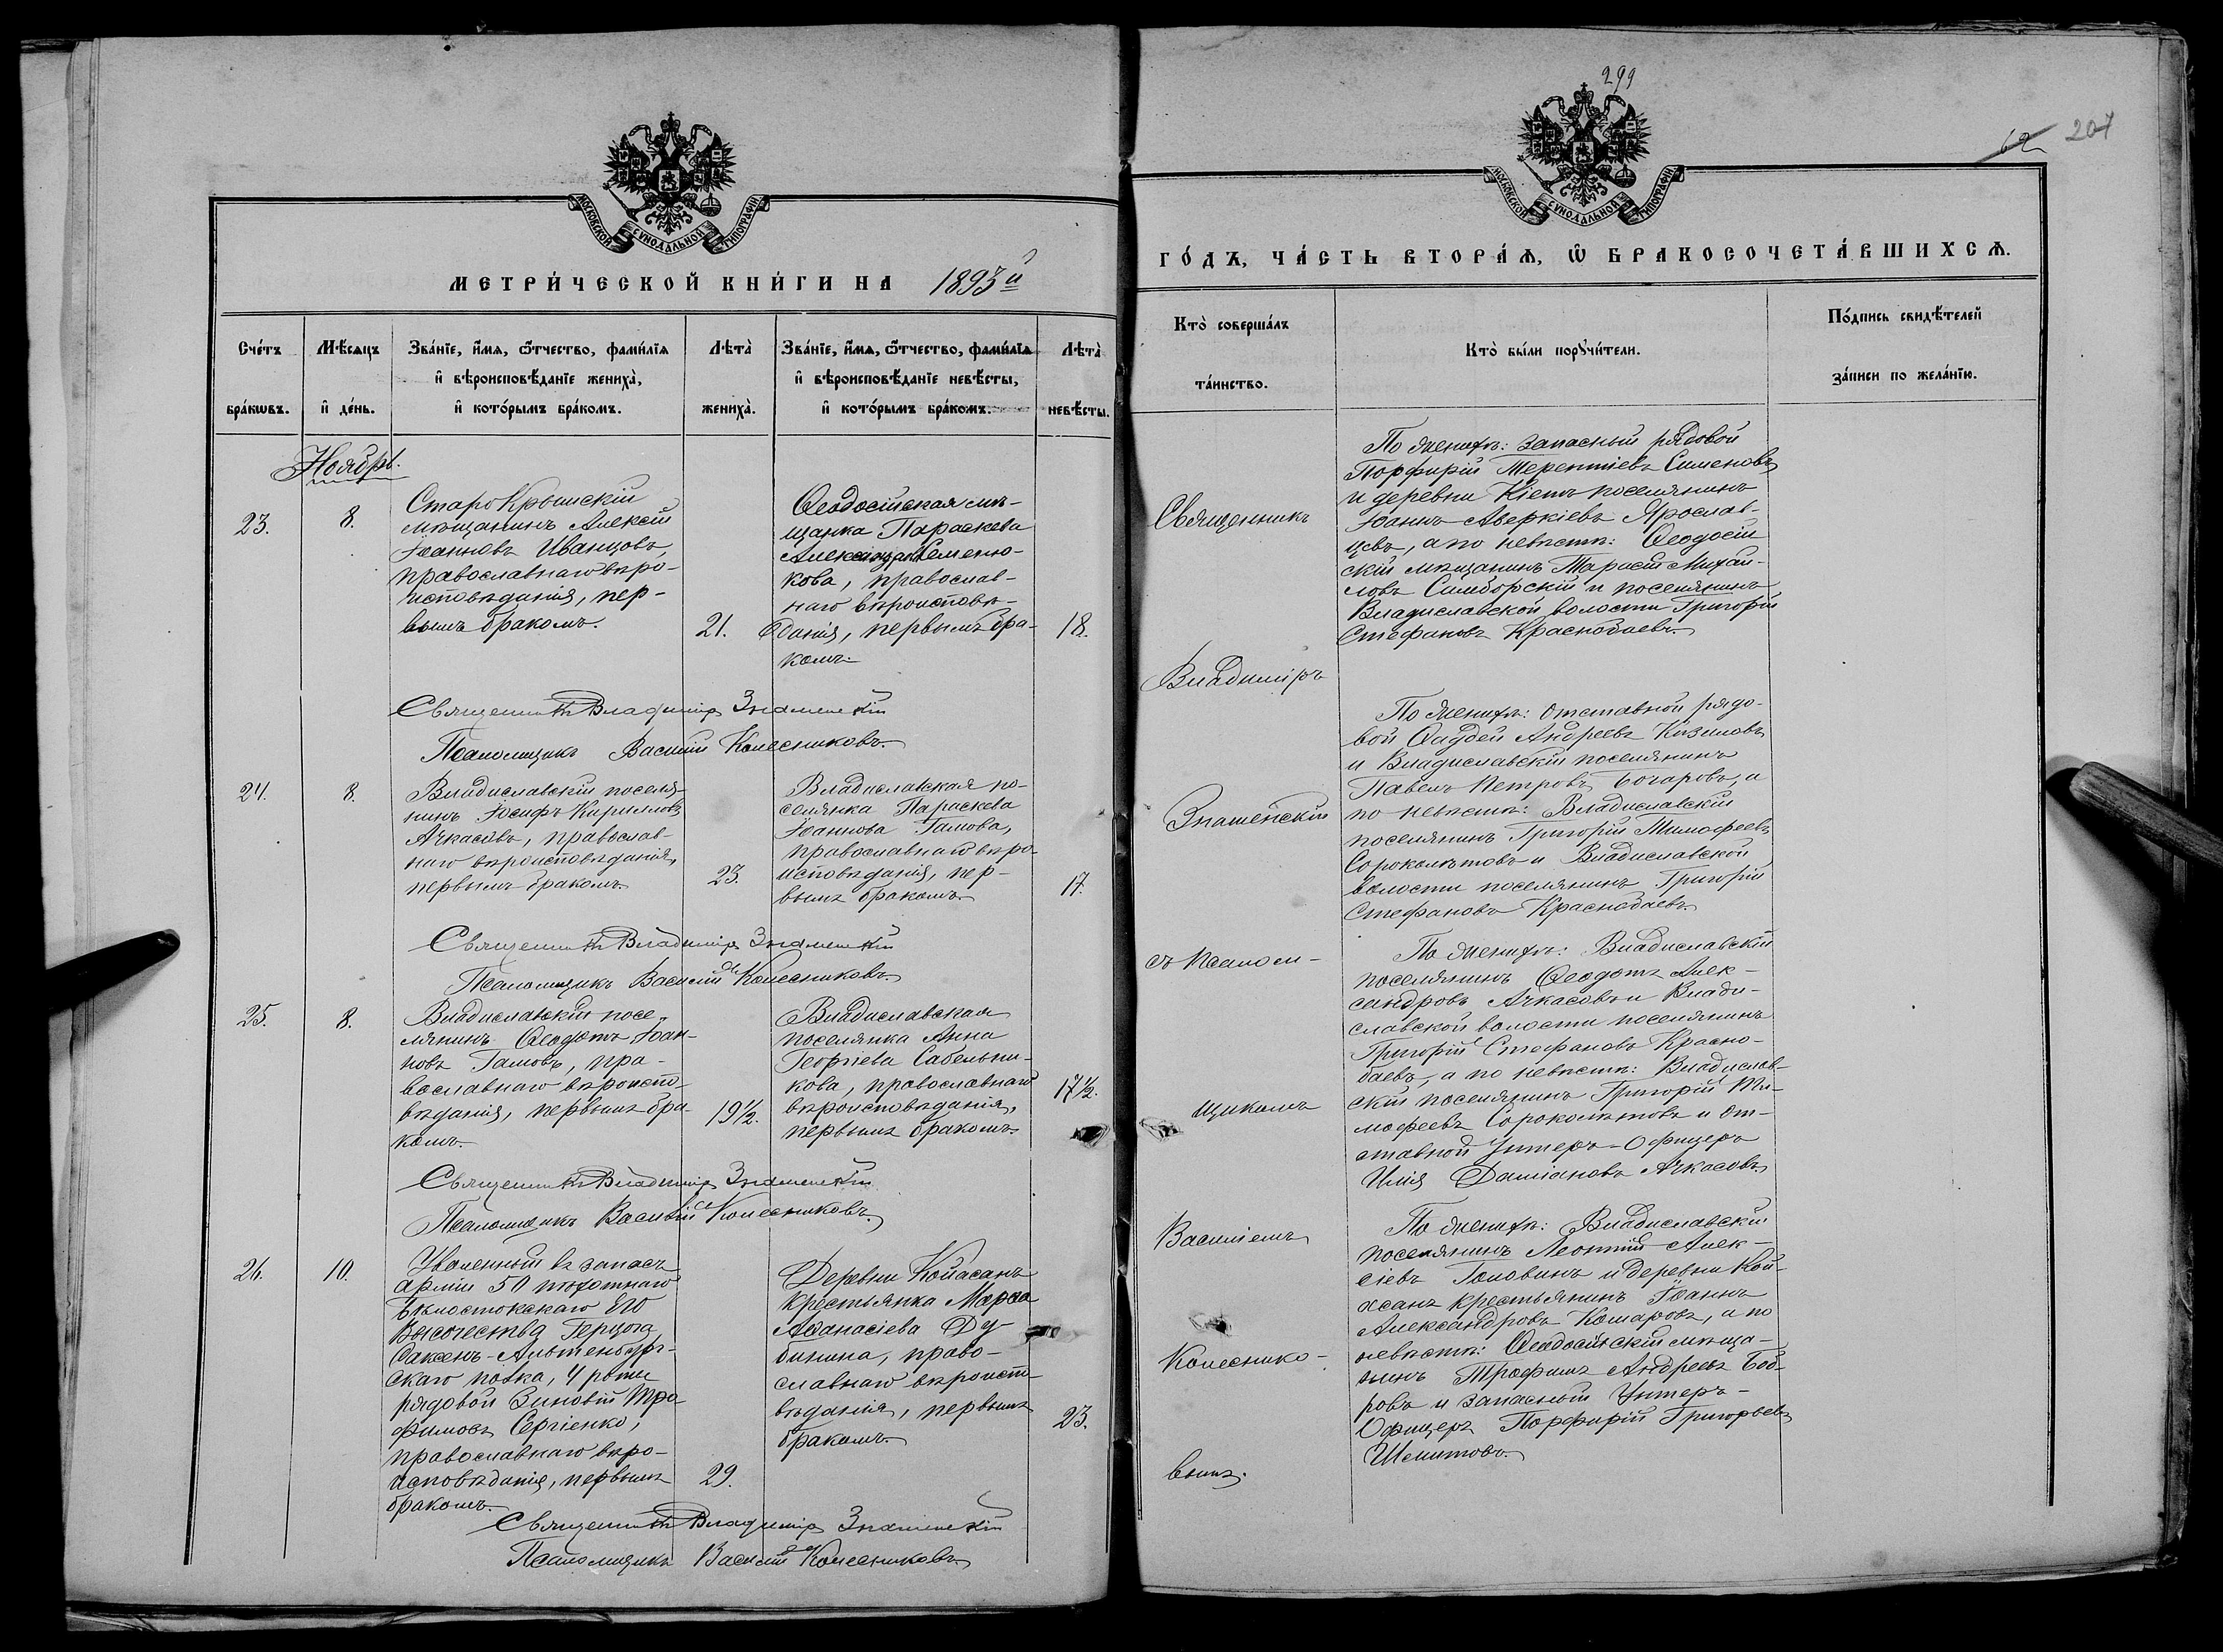 299
62 207
МОСКОВСКОЙ СѴНОДАЛЬНОЙ ТИПОГРАФІИ
МОСКОВСКОЙ СѴНОДАЛЬНОЙ ТИПОГРАФІИ
МЕТРИ́ЧЕСКОЙ КНИ́ГИ НА 1893й
ГО́ДЪ, ЧА́СТЬ ВТОРА́Ѧ, Ѽ БРАКОСОЧЕТА́ВШИХСѦ.
Сче́тъ бра́кѡвъ.
Мѣ́сѧцъ и҆ де́нь.
Зва́нїе, и҆́мѧ, ѻ҆́тчество, фами́лїѧ
и҆ вѣроисповѣ́данїе жениха̀,
и҆ кото́рымъ бра́комъ.
Лѣта̀ жениха̀.
Зва́нїе, и҆́мѧ, ѻ҆́тчество, фами́лїѧ
и҆ вѣроисповѣ́данїе невѣ́сты,
и҆ кото́рымъ бра́комъ.
Лѣта̀ невѣ́сты.
Кто̀ соверша́лъ
та́инство.
Кто̀ бы́ли порꙋчи́тели.
По́дпись свидѣ́телей
за́писи по жела́нїю.
Ноябрь.
23.
8.
Старо Крымскій
мѣщанинъ Алексій
Іоанновъ Иванцовъ,
православнаго вѣро-
исповѣданія, пер-
вымъ бракомъ.
21.
Ѳеодосійская мѣ-
щанка Параскева
Александрова Семеню-
кова, православ-
наго вѣроисповѣ-
данія, первымъ бра-
комъ.
18.
Священникъ Владиміръ Знаменскій
Псаломщикъ Василій Колесниковъ.
24.
8.
Владиславскій поселя-
нинъ Іосифъ Кирилловъ
Ачкасовъ, православ-
наго вѣроисповѣданія,
первымъ бракомъ.
23.
Владиславская по-
селянка Параскева
Іоаннова Гамова,
православнаго вѣро-
исповѣданія, пер-
вымъ бракомъ.
17.
Священникъ Владиміръ Знаменскій
Псаломщикъ Василій Колесниковъ.
25.
8.
Владиславскій посе-
лянинъ Ѳеодотъ Іоан-
новъ Гамовъ, пра-
вославнаго вѣроиспо-
вѣданія, первымъ бра-
комъ.
19½.
Владиславская
поселянка Анна
Георгіева Сабельни-
кова, православнаго
вѣроисповѣданія,
первымъ бракомъ.
17½.
Священникъ Владиміръ Знаменскій
Псаломщикъ Василій Колесниковъ.
26.
10.
Уволенный въ запасъ
арміи 50 пѣхотнаго
Бѣлостокскаго Его
Высочества Герцога
Саксенъ-Альтенбург-
скаго полка, 4 роты
рядовой Зиновій Тро-
фимовъ Сергіенко,
православнаго вѣро-
исповѣданія, первымъ
бракомъ.
29.
Деревни Койасанъ
крестьянка Марѳа
Аѳанасіева Ду-
бинина, право-
славнаго вѣроиспо-
вѣданія, первымъ
бракомъ.
23.
Священникъ Владиміръ Знаменскій
Псаломщикъ Василій Колесниковъ.
Священникъ
Владиміръ
Знаменскій
съ псалом-
щикомъ
Василіемъ
Колеснико-
вымъ.
По женихѣ: запасный рядовой
Порфирій Терентіевъ Сименовъ
и деревни Кіетъ поселянинъ
Іоаннъ Аверкіевъ Ярослав-
цевъ, а по невѣстѣ: Ѳеодосій-
скій мѣщанинъ Тарасій Михай-
ловъ Симборскій и поселянинъ
Владиславской волости Григорій
Стефановъ Краснобаевъ.
По женихѣ: отставной рядо-
вой Ѳаддей Андреевъ Кизиловъ
и Владиславскій поселянинъ
Павелъ Петровъ Бочаровъ, а
по невѣстѣ: Владиславскій
поселянинъ Григорій Тимофеевъ
Сороколѣтовъ и Владиславской
волости поселянинъ Григорій
Стефановъ Краснобаевъ.
По женихѣ: Владиславскій
поселянинъ Ѳеодотъ Алек-
сандровъ Ачкасовъ и Влади-
славской волости поселянинъ
Григорій Стефановъ Красно-
баевъ, а по невѣстѣ: Владислав-
скій поселянинъ Григорій Ти-
мофеевъ Сороколѣтовъ и от-
ставной Унтеръ-Офицеръ
Илія Даміановъ Ачкасовъ.
По женихѣ: Владиславскій
поселянинъ Леонтій Алек-
сіевъ Головинъ и деревни Кой-
асанъ крестьянинъ Іоаннъ
Александровъ Комаровъ, а по
невѣстѣ: Ѳеодосійскій мѣща-
нинъ Трофимъ Андреевъ Боб-
ровъ и запасный Унтеръ-
Офицеръ Порфирій Григорьевъ
Шелитовъ.